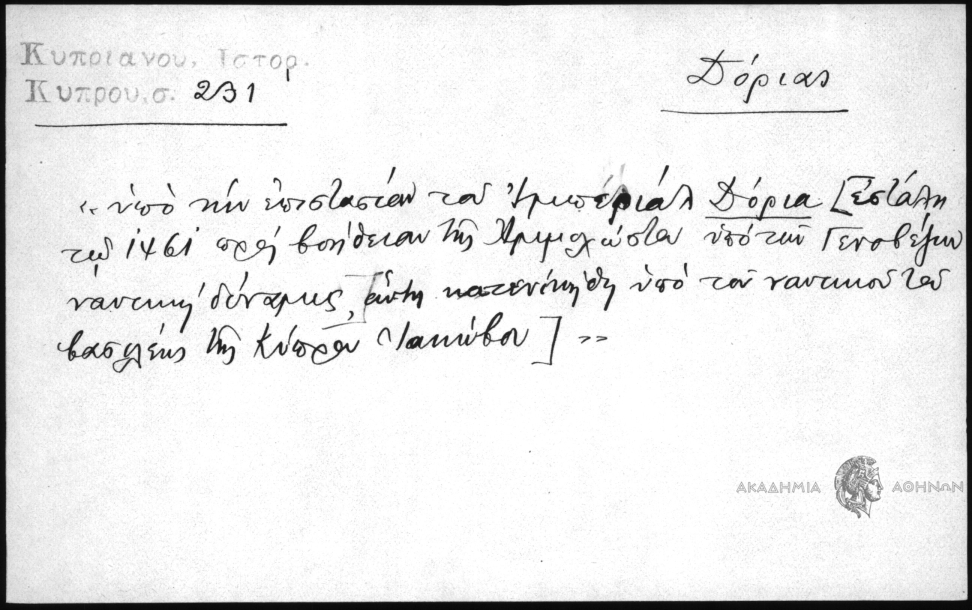 Κυπριανου, Ιστορ.
Κυπρου, σ. 231
Δόριας
« ὑπὸ τὴν ἐπιστασίαν τοῦ Ἰμπέριάλ Δόρια [Ἐστάλη
τῷ 1461 πρὸς βοήθειαν τῆς Ἀμμοχώστου ὑπὸ τῶν Γενοβέζων
ναυτικὴ δύναμις, αὕτη κατενικήθη ὑπὸ τοῦ ναυτικοῦ τοῦ
βασιλέως τῆς Κύπρου Ἰακώβου] »
ΑΚΑΔΗΜΙΑ ΑΘΗΝΩΝ